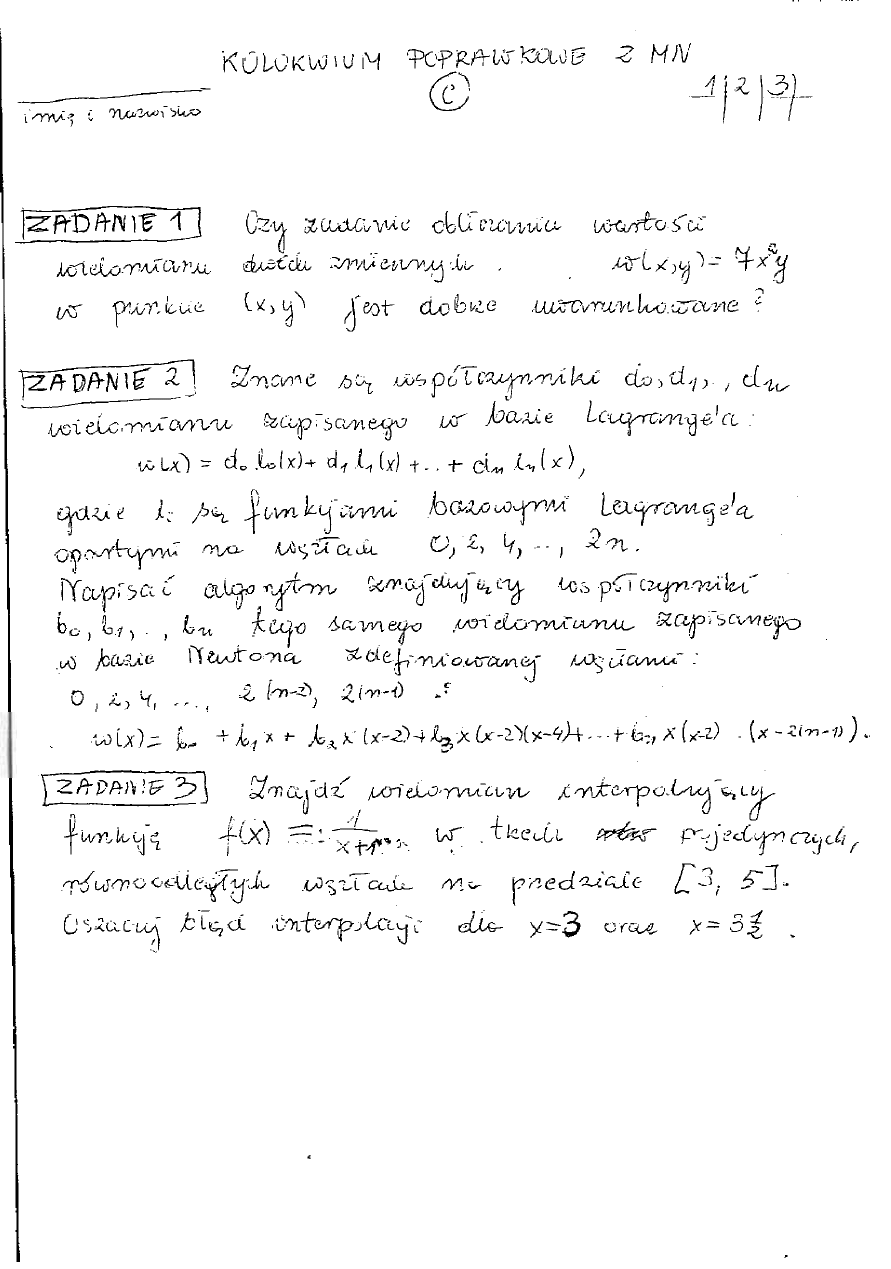 KOLOKWIUM POPRAWKOWE Z MN
C
1 | 2 | 3
imię i nazwisko
ZADANIE 1 Czy zadanie obliczania wartości
wielomianu dwóch zmiennych w(x,y) = 7x²y
w punkcie (x,y) jest dobrze uwarunkowane?
ZADANIE 2 Znane są współczynniki d₀, d₁, ., dₙ
wielomianu zapisanego w bazie Lagrange'a:
w(x) = d₀ l₀(x) + d₁ l₁(x) + ... + dₙ lₙ(x),
gdzie lᵢ są funkcjami bazowymi Lagrange'a
opartymi na węzłach 0, 2, 4, .., 2n.
Napisać algorytm znajdujący współczynniki
b₀, b₁, ., bₙ tego samego wielomianu zapisanego
w bazie Newtona zdefiniowanej węzłami:
0, 2, 4, ..., 2(n-2), 2(n-1) :
w(x) = b₀ + b₁x + b₂x(x-2) + b₃x(x-2)(x-4) + ... + bₙ x(x-2) . (x-2(n-1)).
ZADANIE 3 Znajdź wielomian interpolujący
funkcję f(x) = 1/(x+1) w trzech pojedynczych,
równoodległych węzłach na przedziale [3, 5].
Oszacuj błąd interpolacji dla x=3 oraz x=3½.